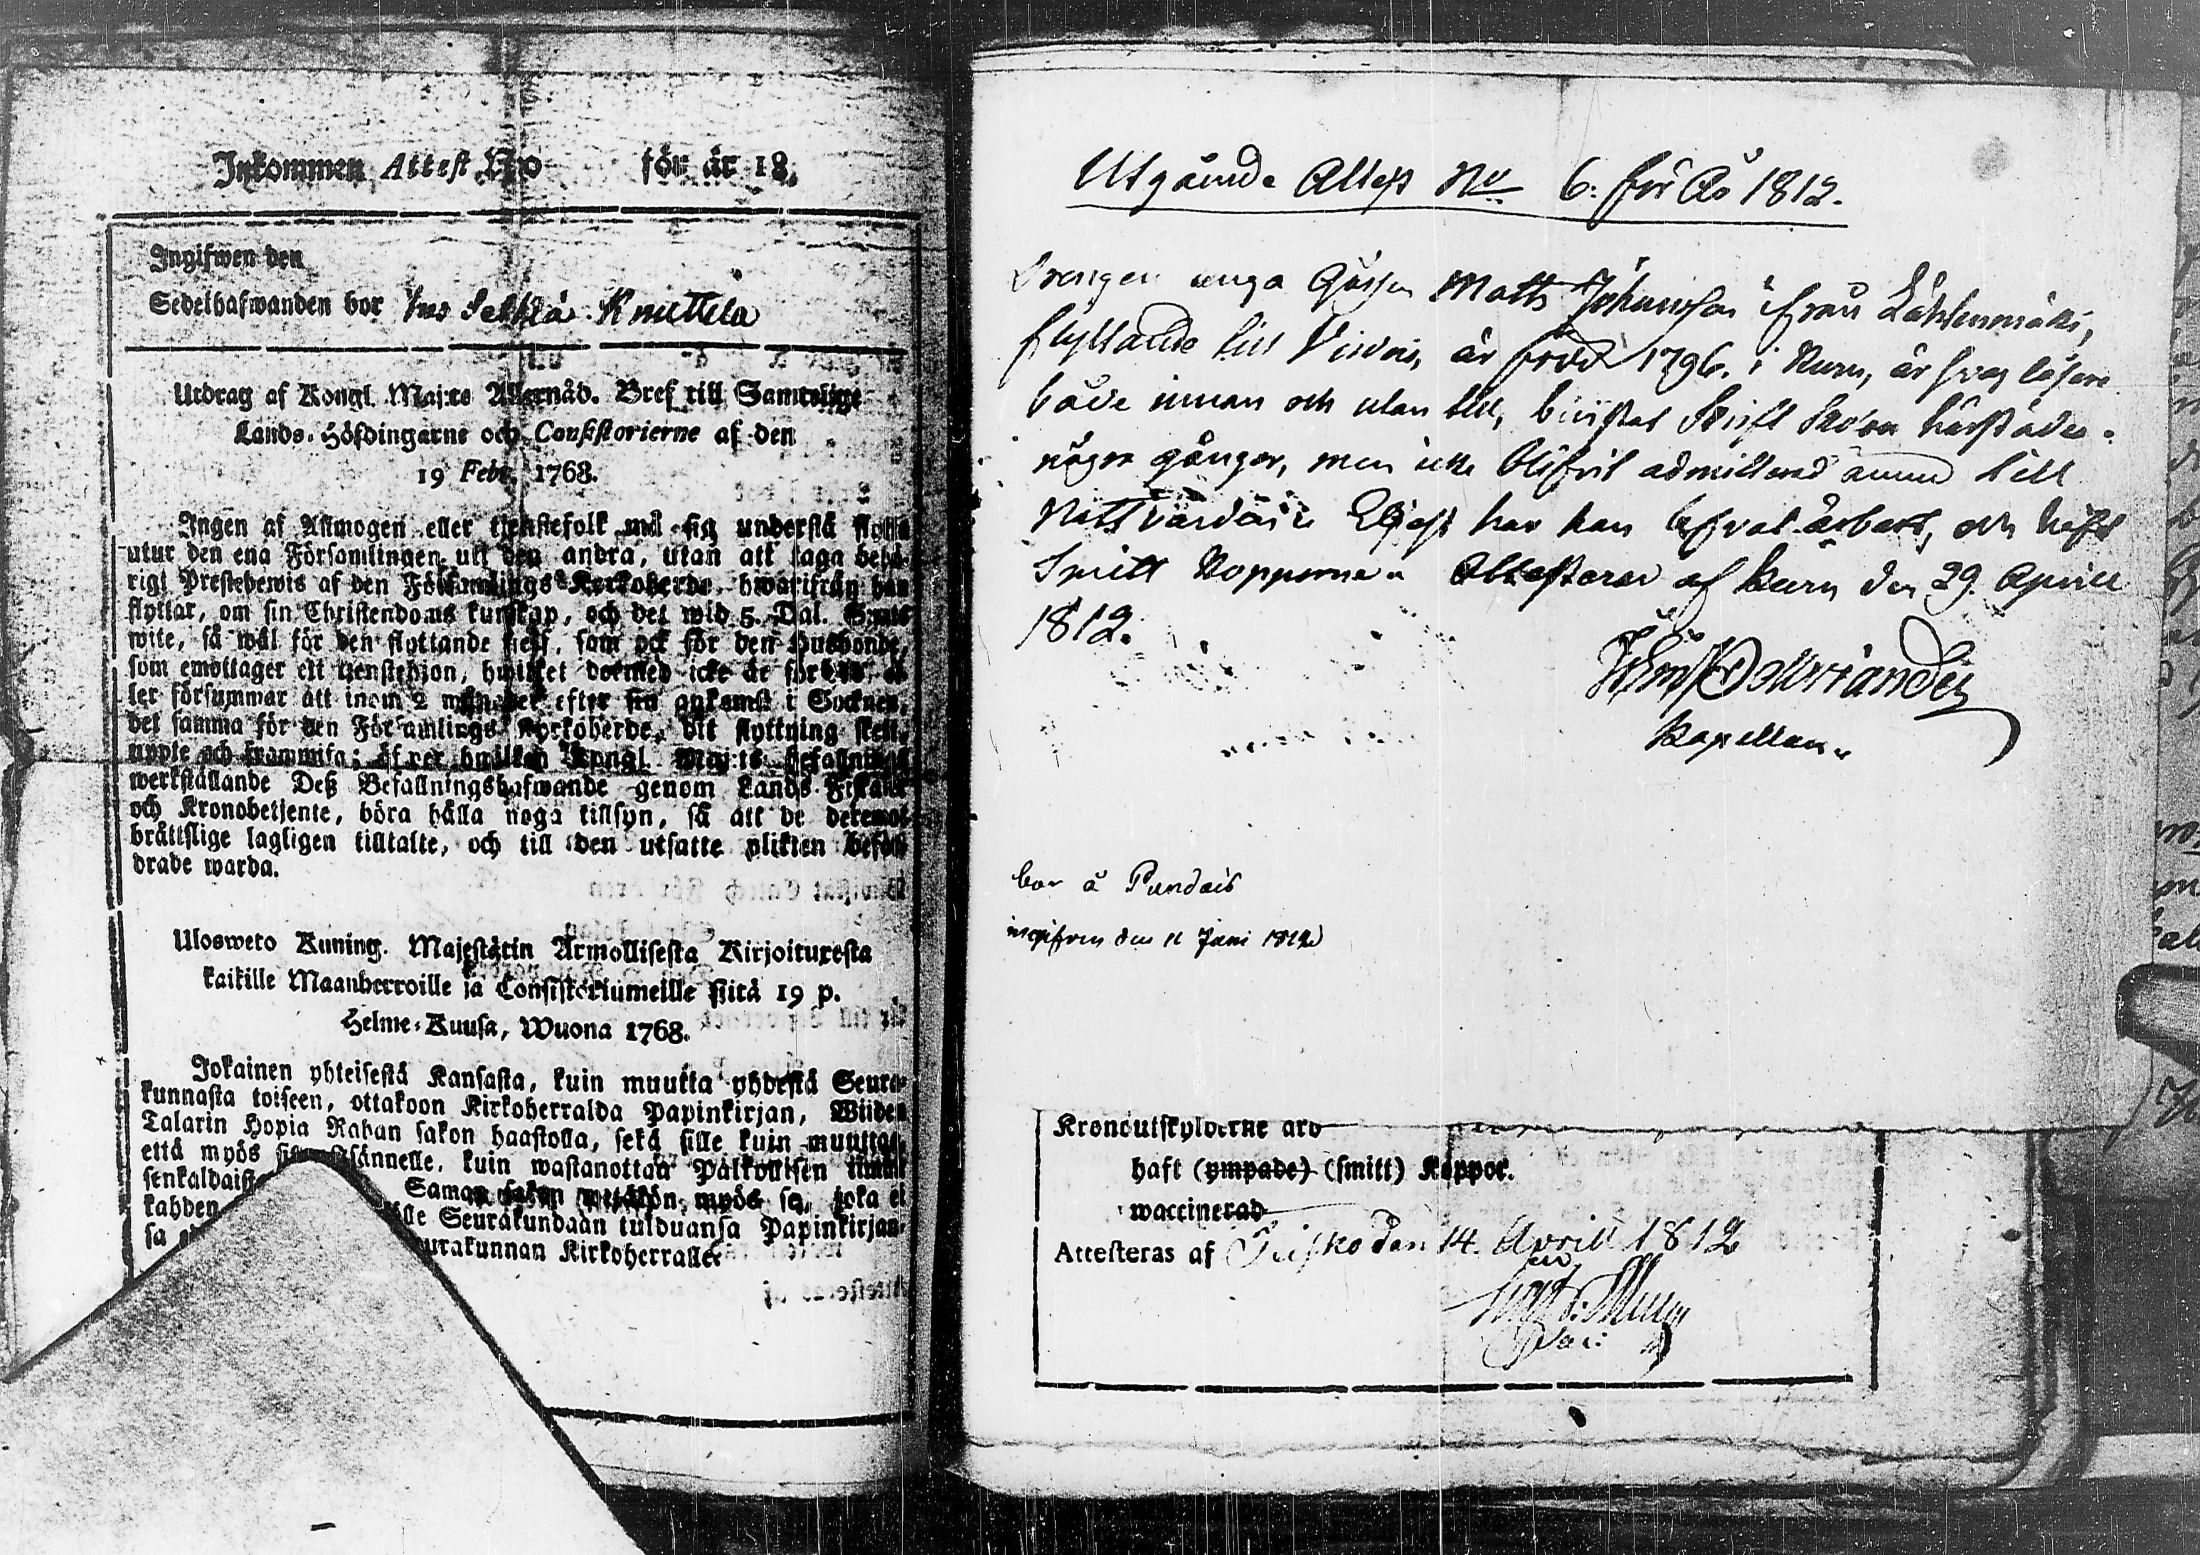 Inkommen Attest No för år 18
Ingifwen den
Sedelhafwanden bor hos Knuttila
Utdrag af Kongl. Maj:ts Allernåd. Bref till Samtelige
Lands-Höfdingarne och Consistorierne af den
19 Febr. 1768.
Ingen af Allmogen eller tjenstefolk må sig understå flytta
utur den ena Församlingen uti den andra, utan att taga behö-
rigt Prestebewis af den Församlings Kyrkoherde, hwarifrån han
flyttar, om sin Christendoms kunskap, och det wid 5. Dal. S:mts
wite, så wäl för den flyttande sielf, som ock för den Husbonde,
som emottager ett tjenstehjon, hwilket dermed icke är försedt, el-
ler försummar att inom 2 månader efter sin ankomst i Socknen,
det samma för den Församlings Kyrkoherde, dit flyttning skett,
uppte och frammisa; öfwer hwilken Kongl. Maj:ts befallnings
werkställande Deß Befallningshafwande genom Lands Fiskaler
och Kronobetjente, böra hålla noga tillsyn, så att de deremot
bråttslige lagligen tilltalte, och till den utsatte plikten befor-
drade warda.
Ulosweto Kuning. Majestätin Armollisesta Kirjoituxesta
kaikille Maanherroille ja Consistoriumeille siitä 19 p.
Helme-Kuusa, Wuona 1768.
Jokainen yhteisestä Kansasta, kuin muutta yhdestä Seura-
kunnasta toiseen, ottakoon Kirkoherralda Papinkirjan, Wiiden
Talarin Hopia Rahan sakon haastolla, sekä sille kuin muuttaa,
että myös isännelle, kuin wastanottaa Palkollisen
senkaldaist
kahden Saman sakon wetäkön myös se, joka ei
sa lle Seurakundaan tulduansa Papinkirjan-
urakunnan Kirkoherralle.
Utgåinde Attest No 6. för Ao 1812.
Drengen unga Gåssen Matts Johansson ifrån
flyttande till är född 1796. i Kuru, är svag läsare
både innan och utan till, bivistat Skrift Skolan härstädes
några gånger, men icke blifvit admitterad ännu till
Nattvarden. har han sig ärbart, och haft
Smitt Kopporne. Attesterar af Kuru den 29. Aprill
1812.
Kapellan.
bor å Pundais
ingifven den 11 Juni 1812
Kronoutskylderne
haft (ympade) (smitt) Koppor.
waccinerad
Attesteras af den 14. Aprill 1812